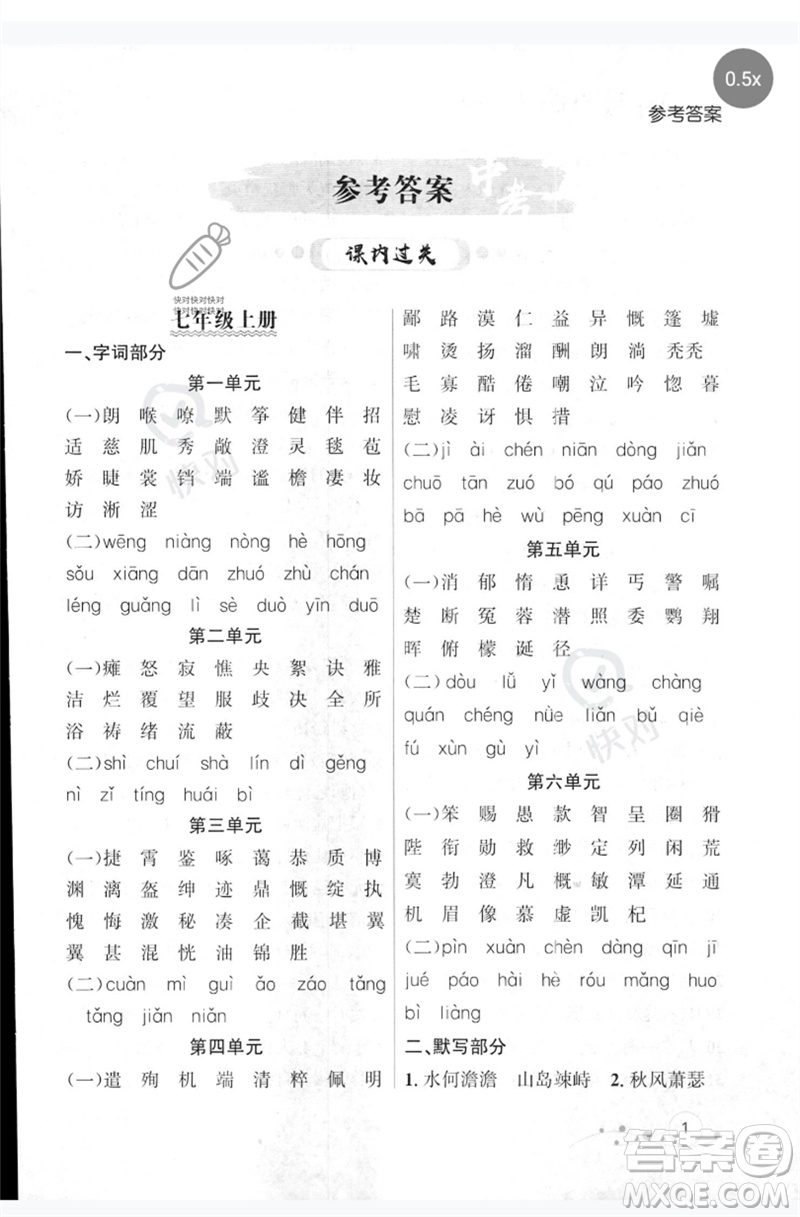 0.5x
参考答案
参考答案
中考
课内过关
快对快对快对
快对快对快对
七年级上册
一、字词部分
第一单元
(一)朗 喉 嘹 默 筝 健 伴 招
适 慈 肌 秀 敞 澄 灵 毯 苞
娇 睫 裳 铛 端 谧 檐 凄 妆
访 渐 涩
(二)wēng niàng nòng hè hōng
sǒu xiāng dān zhuó zhù chán
léng guǎng lì sè duò yīn duō
第二单元
(一)瘫 怒 寂 憔 央 絮 诀 雅
洁 烂 覆 望 服 歧 决 全 所
浴 祷 绪 流 蔽
(二)shì chuí shà lín dì gěng
nì zǐ tíng huái bì
第三单元
(一)捷 霄 鉴 啄 蔼 恭 质 博
渊 漓 盔 绅 迹 鼎 慨 绽 执
愧 悔 激 秘 凑 企 截 堪 翼
翼 甚 混 恍 油 锦 胜
(二)cuàn mì guì ǎo záo tǎng
tǎng jiǎn niǎn
第四单元
(一)遣 殉 机 端 清 粹 佩 明
鄙 路 漠 仁 益 异 慨 篷 墟
啸 烫 扬 溜 酬 朗 淌 秃秃
毛 寡 酷 倦 嘲 泣 吟 惚 暮
慰 凌 讶 惧 措
(二)jì ài chén niān dòng jiǎn
chuō tān zuó bó qú páo zhuó
bā pā hè wù pēng xuàn cī
第五单元
(一)消 郁 惰 恿 详 丐 警 嘱
楚 断 冤 蓉 潜 照 委 鹦 翔
晖 俯 檬 诞 径
(二)dòu lǚ yǐ wàng chàng
quán chéng nüè liǎn bǔ qiè
fú xùn gù yì
快对
快对
第六单元
(一)笨 赐 愚 款 智 呈 圈 猾
陛 衔 勋 救 缈 定 列 闲 荒
寞 勃 澄 凡 概 敏 潭 延 通
机 眉 像 慕 虚 凯 杞
(二)pìn xuàn chèn dàng qīn jī
jué páo hài hè róu mǎng huo
bì liàng
二、默写部分
1.水何澹澹 山岛竦峙 2.秋风萧瑟
1
答案圈
MXQE.COM